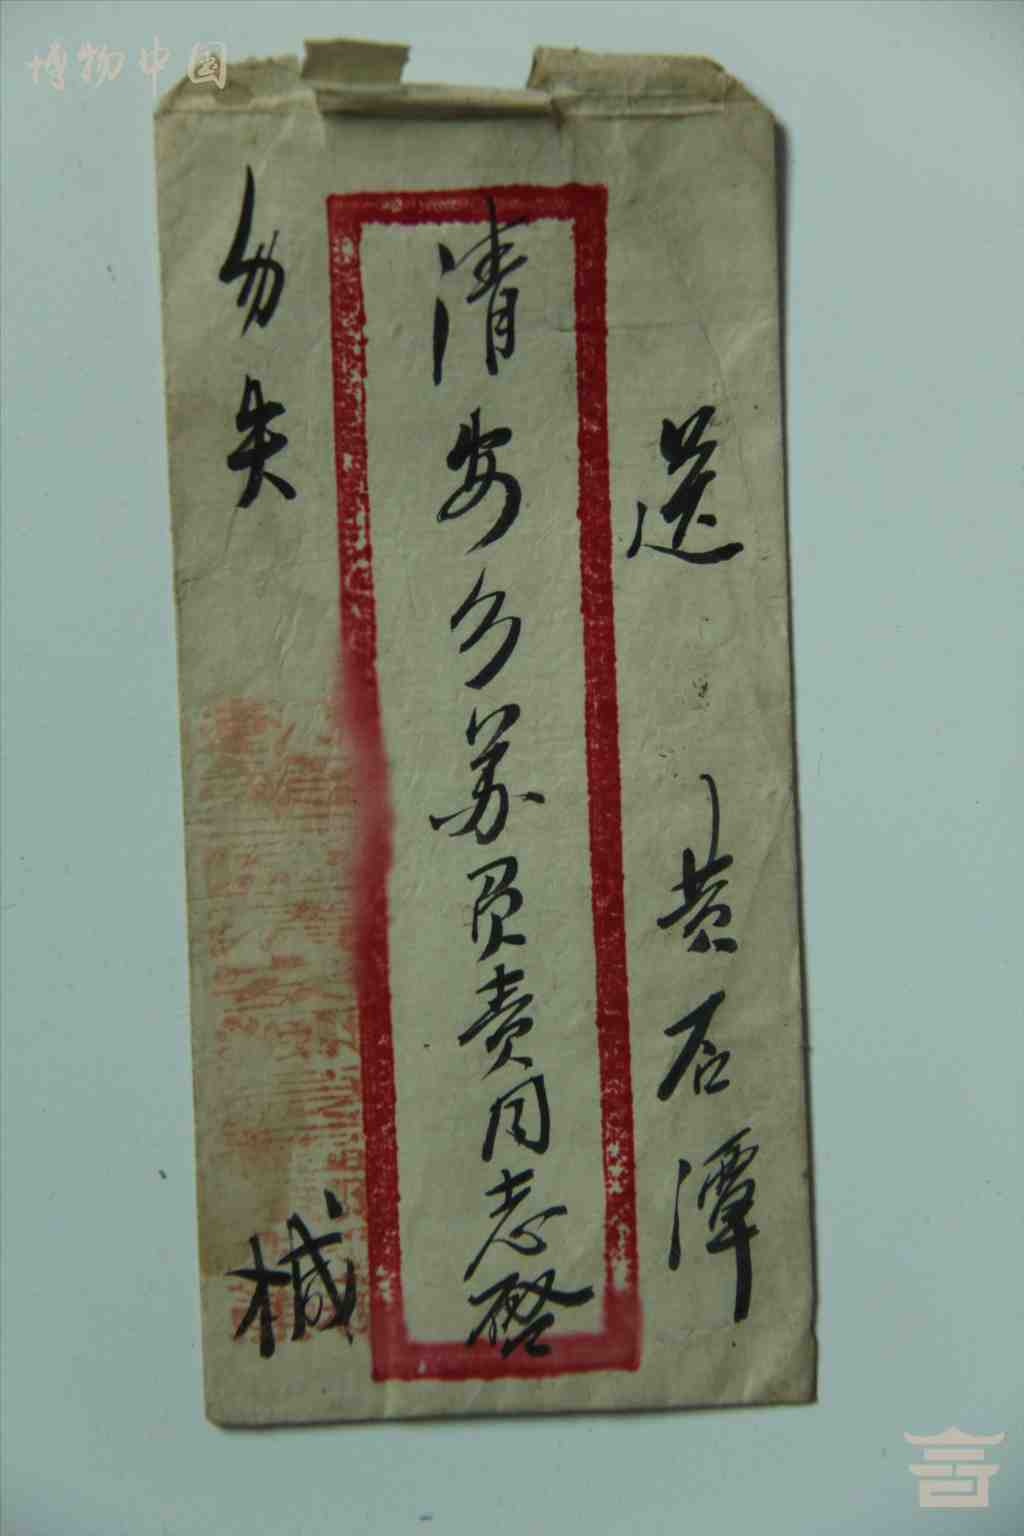 博物中国
送 黄石潭
清安乡苏负责同志啓
勿失 椷